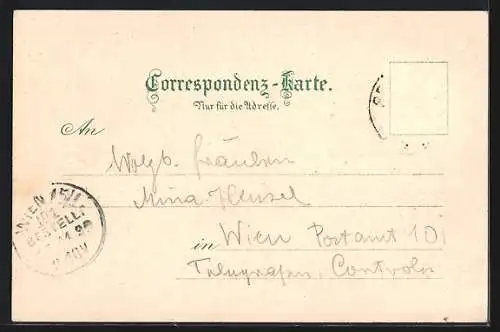 Correspondenz-Karte.
Nur für die Adresse.
An
Wolgb. Fräulein
Mina Hensel
in Wien Postamt 101
Telegrafen Controlor
WIEN 15/1
BESTELLT